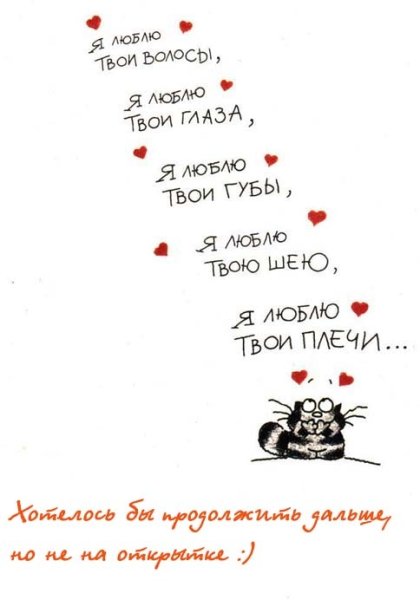 Я люблю
Твои волосы,
Я люблю
Твои глаза,
Я люблю
Твои губы,
Я люблю
Твою шею,
Я люблю
Твои плечи...
Хотелось бы продолжить дальше,
но не на открытке :)